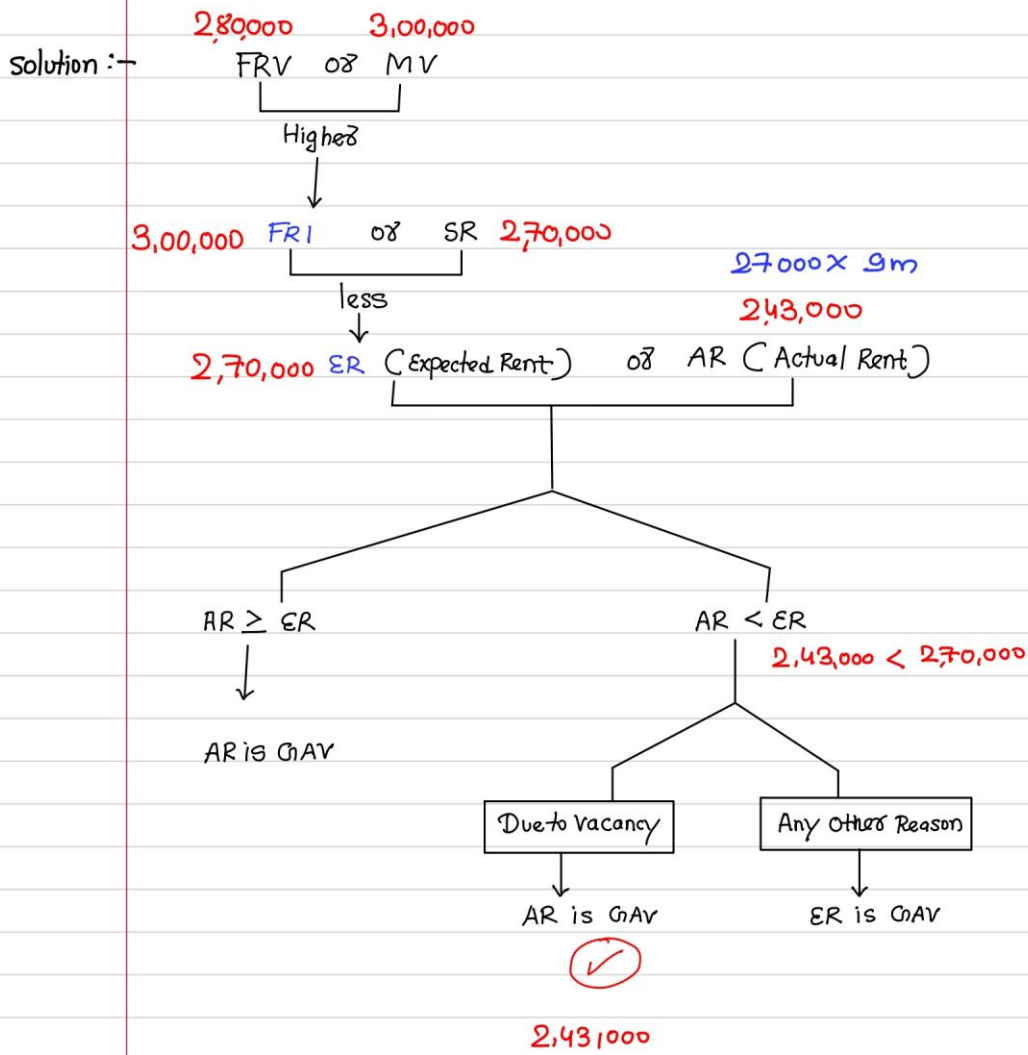 2,80,000 3,00,000
Solution :- FRV or MV
Higher
3,00,000 FRI or SR 2,70,000
27000 x 9m
less
2,43,000
2,70,000 ER (Expected Rent) or AR (Actual Rent)
AR ≥ ER AR < ER
2,43,000 < 2,70,000
AR is GAV
Due to vacancy Any Other Reason
AR is GAV ER is GAV
✓
2,43,000